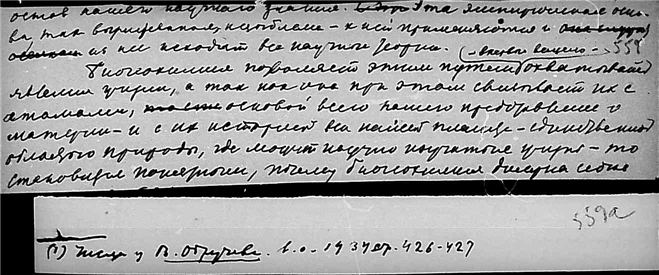 остов нашего научного знания. Эта эмпирическая осно-
ва так выраженная, незыблема - к ней применяются и
из нее исходят все научные теории. 558
Биогеохимия позволяет этим путем охватывать
явления жизни, а так как она при этом связывает их с
атомами, основой всего нашего представления о
материи - и с их историей на нашей планете - единственной
области природы, где может научно изучаться жизнь - то
становится понятным, почему биогеохимия
559а
(1) у В. Обручева. 1937 стр. 426-427